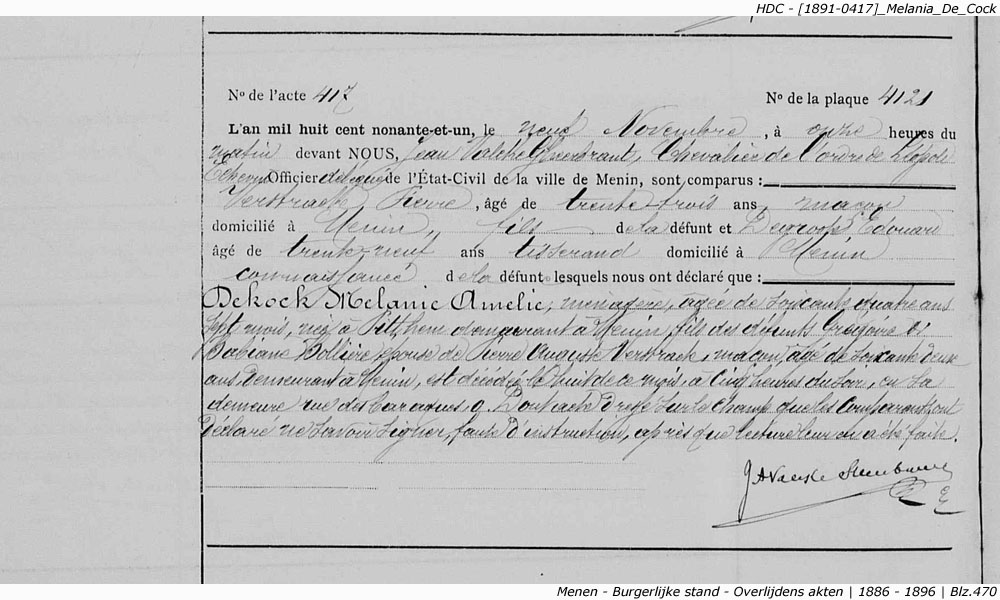 HDC - [1891-0417]_Melania_De_Cock
Nº de l'acte 417 Nº de la plaque 4121
L'an mil huit cent nonante-et-un, le neuf Novembre, à onze heures du
matin devant NOUS, Jean Chevalier de l'ordre de Léopold
Echevin Officier délégué de l'État-Civil de la ville de Menin, sont comparus :
Verstraete Pierre, âgé de trente trois ans, maçon
domicilié à Menin, fils de la défunt et Edouard
âgé de trente-neuf ans tisserand domicilié à Menin
connaissance de la défunte lesquels nous ont déclaré que :
Dekock Melanie Amelie, ménagère, âgée de soixante quatre ans
sept mois, née à Pitthem demeurant à Menin, fils des défunts Grégoire et
Babiane Hollière, épouse de Pierre Auguste Verstraete, maçon, âgé de soixante deux
ans, demeurant à Menin, est décédée le huit de ce mois, à cinq heures du soir, en sa
demeure rue des Baraques 9. Dont acte dressé sur le champ que les comparants ont
déclaré ne savoir signer, faute d'instruction, après que lecture leur en a été faite.
Menen - Burgerlijke stand - Overlijdens akten | 1886 - 1896 | Blz.470